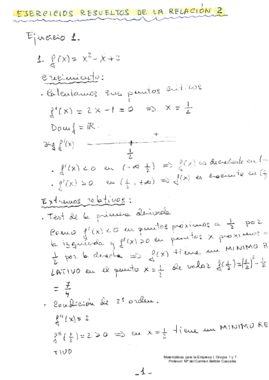 EJERCICIOS RESUELTOS DE LA RELACIÓN 2
Ejercicio 1.
1. f(x) = x² - x + 2
Crecimiento:
• Calculamos sus puntos críticos
f'(x) = 2x - 1 = 0 ⟹ x = 1/2
Dom f = ℝ.
- +
sig f'(x)
1/2
• f'(x) < 0 en (-∞, 1/2) ⟹ f(x) es decreciente en (-
• f'(x) > 0 en (1/2, +∞) ⟹ f(x) es creciente en (1/2
Extremos relativos:
• Test de la primera derivada
Como f'(x) < 0 en puntos próximos a 1/2 por
la izquierda y f'(x) > 0 en puntos x próximos
1/2 por la derecha ⟹ f(x) tiene un MINIMO R
LATIVO en el punto x = 1/2 de valor f(1/2) = (1/2)² - 1/2
= 7/4
• Condición de 2º orden.
f''(x) = 2
f''(1/2) = 2 > 0 ⟹ en x = 1/2 tiene un MINIMO RE
TIVO
Matemáticas para la Empresa I. Grupos 1 y 7
Profesor: Mª del Carmen
- 1 -